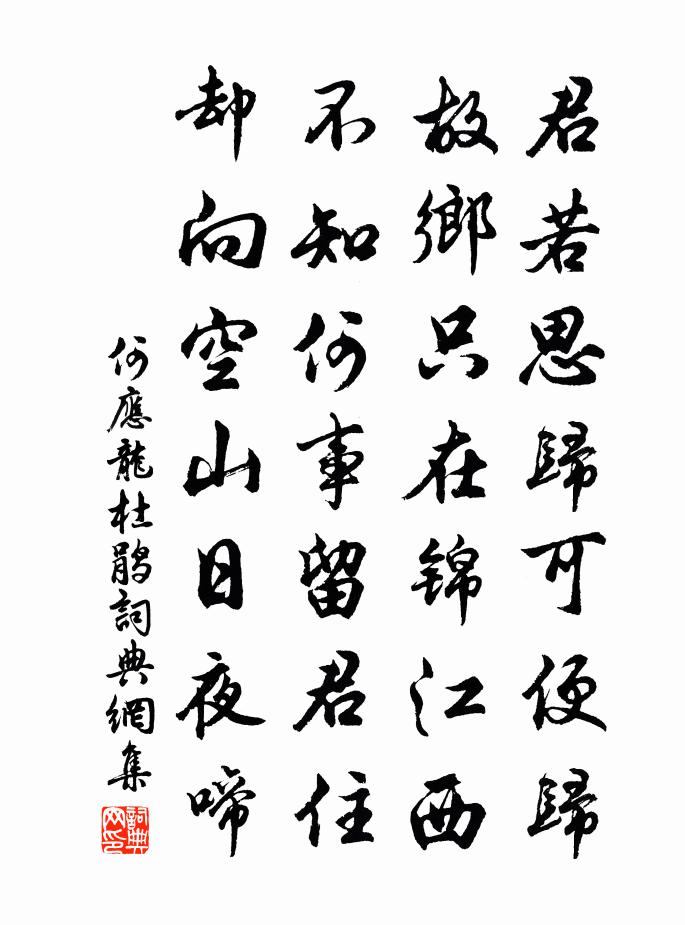 君若思歸可便歸
故鄉只在錦江西
不知何事留君住
却向空山日夜啼
何應龍杜鵑詞典網集
詞典网印